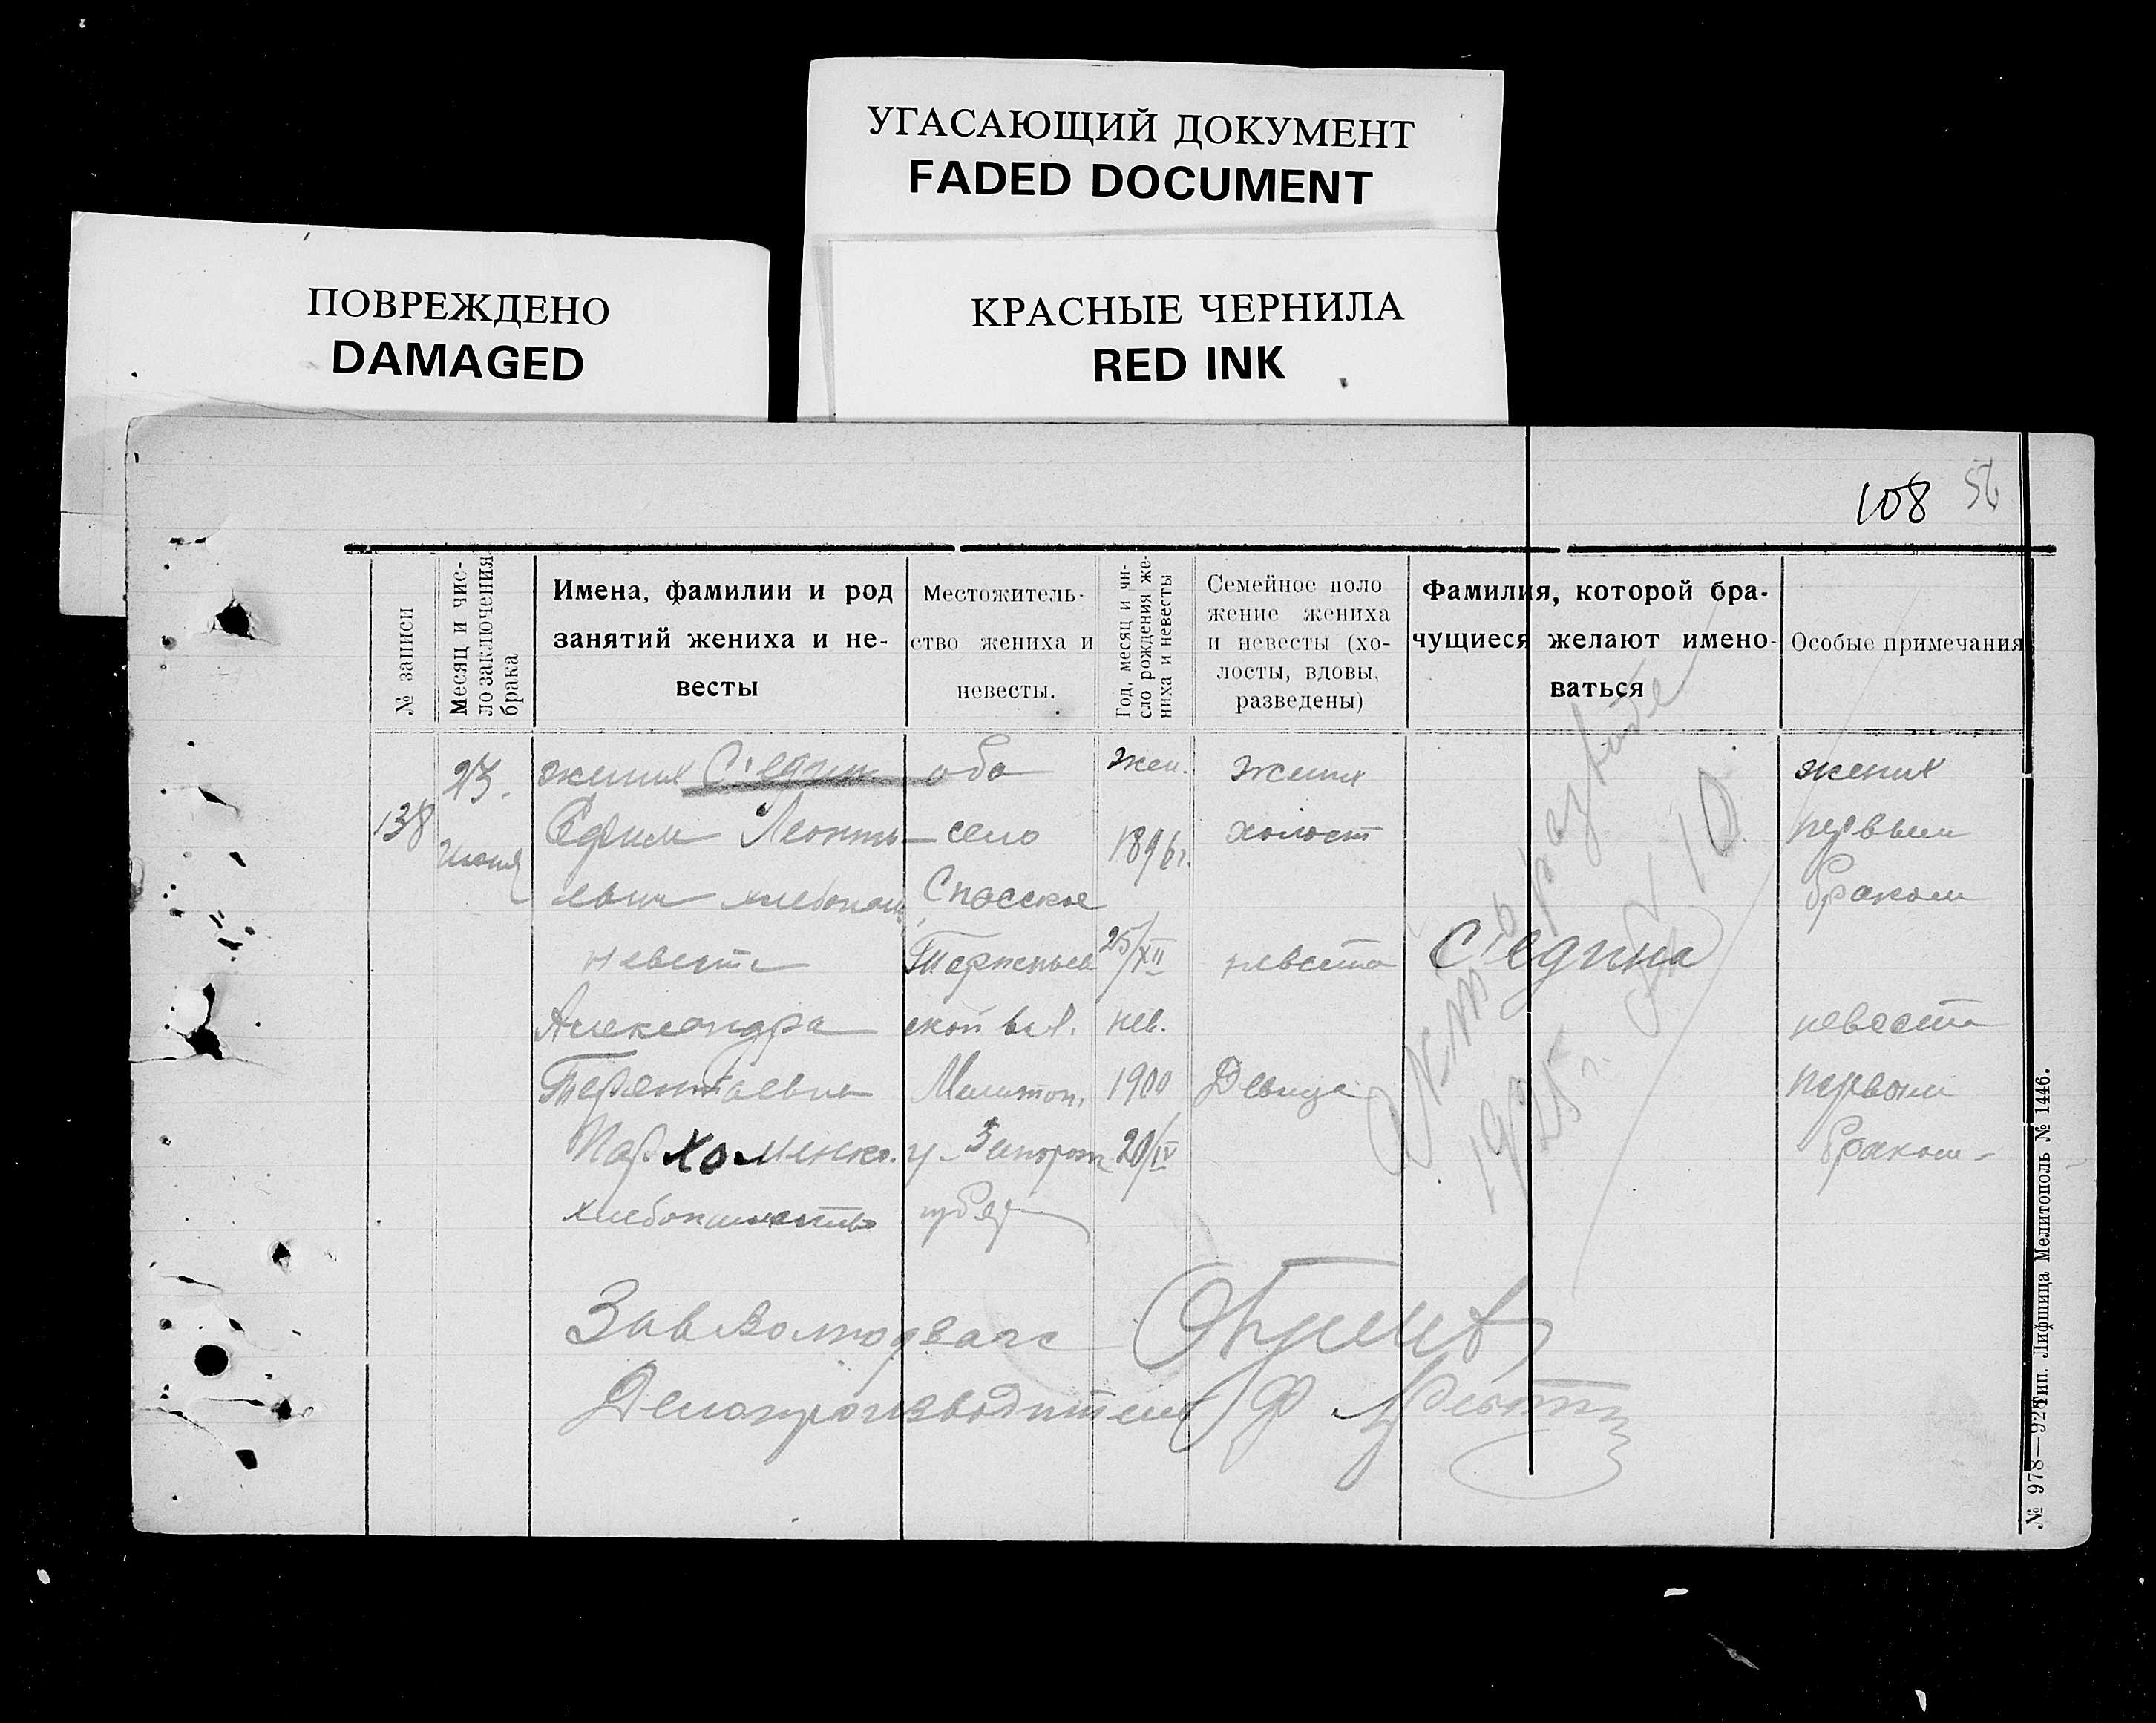 УГАСАЮЩИЙ ДОКУМЕНТ
FADED DOCUMENT
ПОВРЕЖДЕНО
DAMAGED
КРАСНЫЕ ЧЕРНИЛА
RED INK
108 56
№ записи
Месяц и чис-
ло заключения
брака
Имена, фамилии и род
занятий жениха и не-
весты
Местожитель-
ство жениха и
невесты.
Год, месяц и чи-
сло рождения же-
ниха и невесты
Семейное поло
жение жениха
и невесты (хо-
лосты, вдовы,
разведены)
Фамилия, которой бра-
чущиеся желают имено-
ваться
Особые примечания
138
23.
Июня
жених Седин
Ефим Леонть-
евич хлебопаш.
невеста
Александра
Терентьевна
Пархоменко.
хлебопашество
оба
село
Спасское
ской вол.
Мелитоп.
у. Запорож
губер
Жен.
1896г.
25/XII
нев.
1900
20/IV
Жених
холост
невеста
Девица
Седина
Акт о разводе
1925 г. № 10
жених
первым
браком
невеста
первым
браком
Зав
Делопроизводитель
№ 978—928 Тип. Лифшица Мелитополь № 1446.